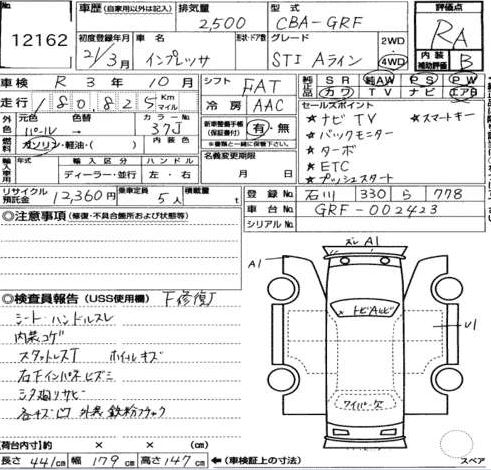 12162
車歴 (自家用以外は記入) 排気量 型式 評価点
2,500 CBA-GRF RA
初度登録年月 車名 形状・ドア数 グレード 2WD 4WD
21/3月 インプレッサ STI Aライン
内装補助評価 B
車検 R3年10月 シフト FAT 純正品 SR 純AW PS PW
カワ TV ナビ エアB
走行 180,825 Km マイル 冷房 AAC
セールスポイント
★ナビTV ★スマートキー
★バックモニター
★ターボ
★ETC
★プッシュスタート
外色 元色 色替 カラーNo. 新車整備手帳(保証書付) 有・無
パール 37J 内装色
燃料 ガソリン・軽油・( ) 名義変更期限
輸入車用 年式 輸入区分 ハンドル 月 日
ディーラー・並行 左・右
リサイクル預託金 12,360円 乗車定員 5人 積載量 t
登録No. 石川 330 ら 778
車台No. GRF-002423
シリアルNo.
◎注意事項 (修復・不具合箇所および状態等)
◎検査員報告 (USS使用欄) F修復J
シート ハンドルスレ
内装コゲ
スタットレスT ホイルキズ
右下インパネヒズミ
シタ廻りサビ
各キズ 外装 鉄粉
スレ A1
A1
トビA
ワイパーケア
U1
スペア
【荷台内寸】 長さ × 幅 × 高さ (cm)
長さ 441cm 幅 179cm 高さ 147cm ←(車検証上の寸法)